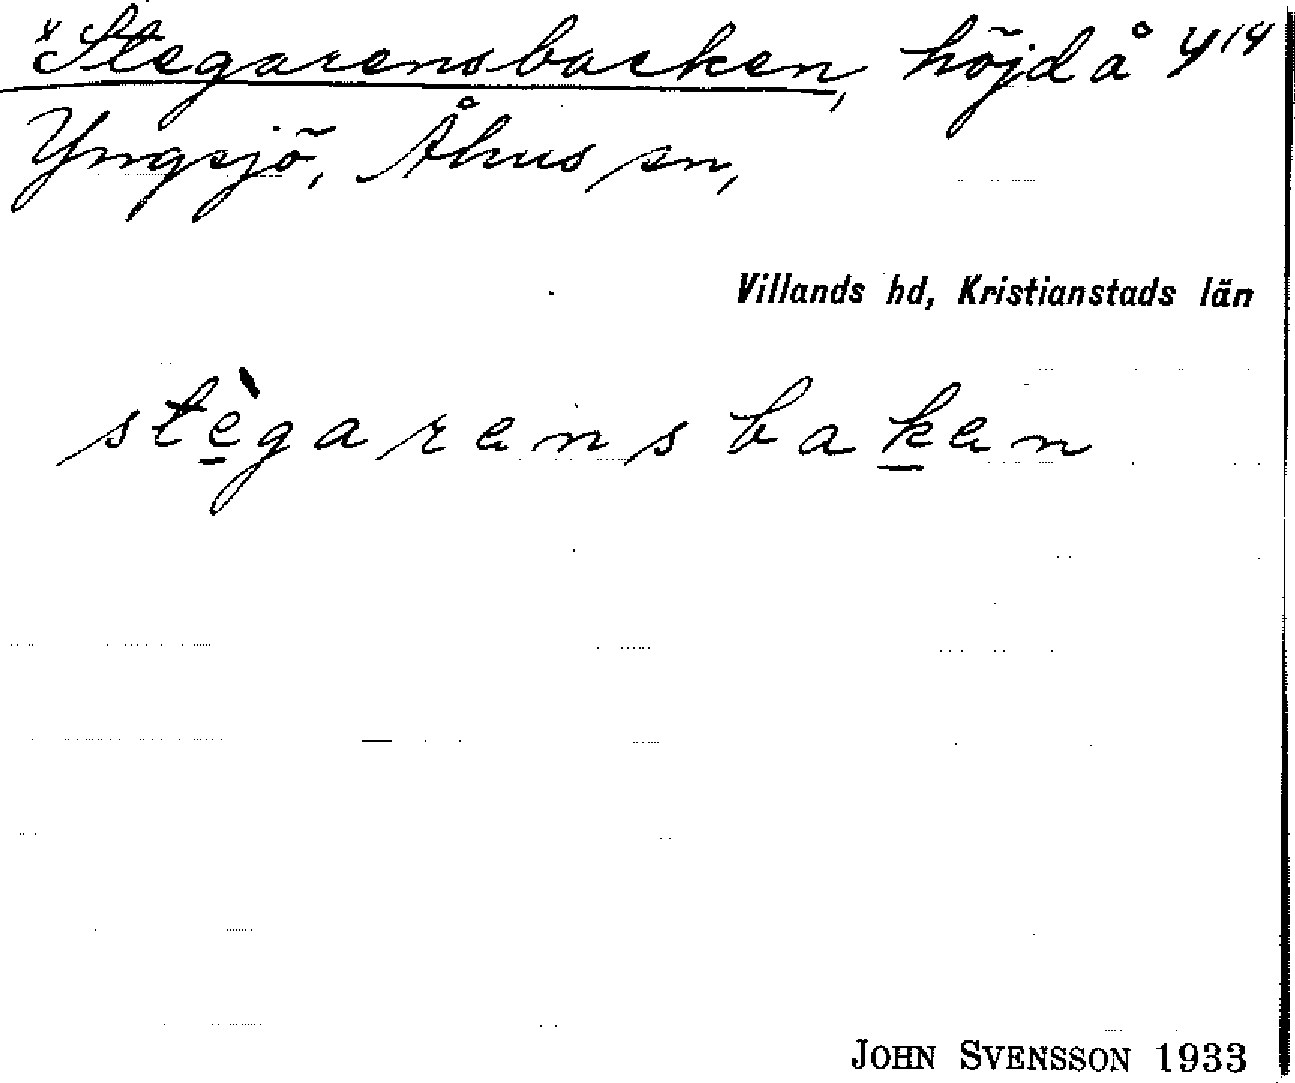 ˣStegarensbacken, höjd å Y 14
Yngsjö, Åhus sn,
Villands hd, Kristianstads län
stègarensbaken
JOHN SVENSSON 1933